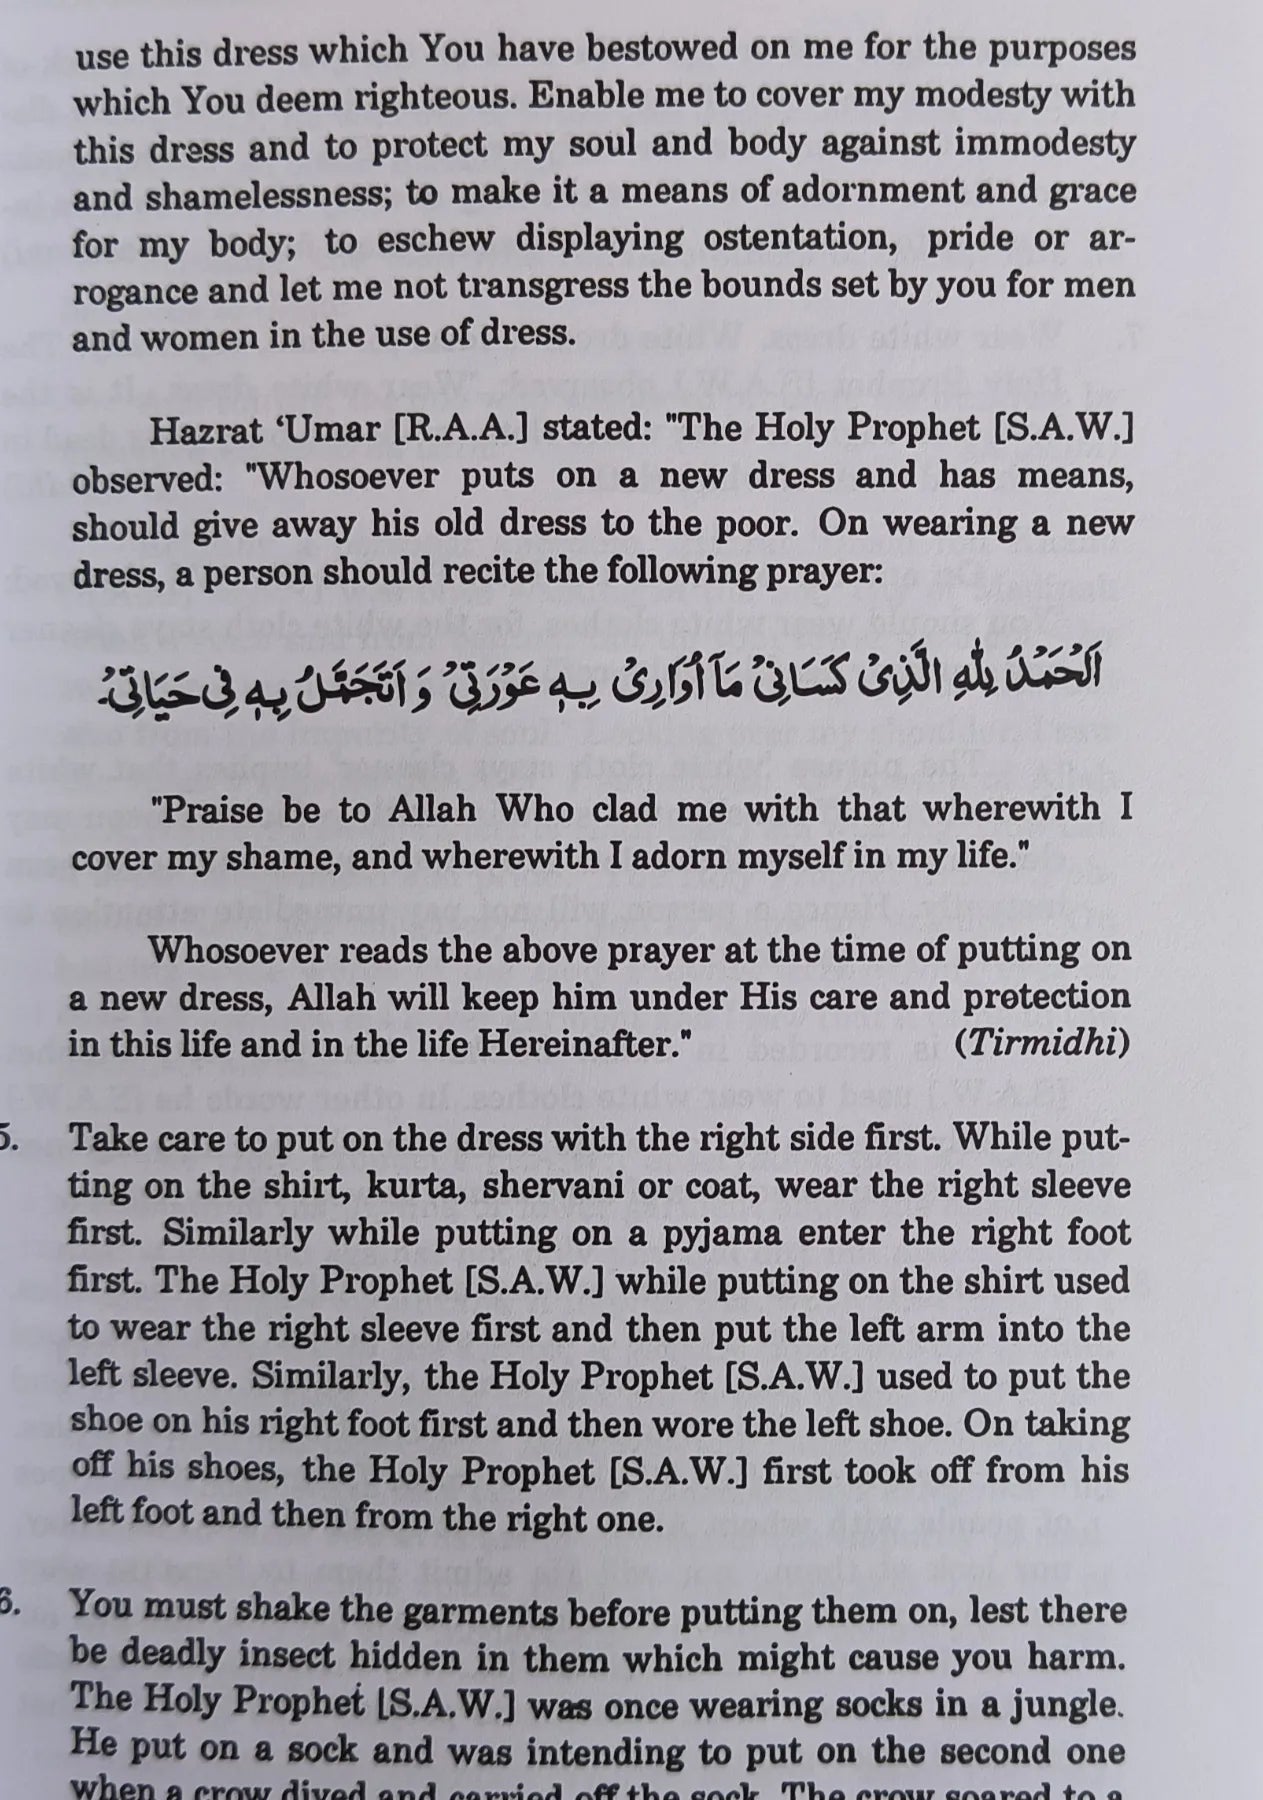 use this dress which You have bestowed on me for the purposes
which You deem righteous. Enable me to cover my modesty with
this dress and to protect my soul and body against immodesty
and shamelessness; to make it a means of adornment and grace
for my body; to eschew displaying ostentation, pride or ar-
rogance and let me not transgress the bounds set by you for men
and women in the use of dress.
Hazrat ‘Umar [R.A.A.] stated: "The Holy Prophet [S.A.W.]
observed: "Whosoever puts on a new dress and has means,
should give away his old dress to the poor. On wearing a new
dress, a person should recite the following prayer:
اَلْحَمْدُ لِلّٰهِ الَّذِىْ كَسَانِىْ مَآ اُوَارِىْ بِهٖ عَوْرَتِىْ وَ اَتَجَمَّلُ بِهٖ فِىْ حَيَاتِىْ۔
"Praise be to Allah Who clad me with that wherewith I
cover my shame, and wherewith I adorn myself in my life."
Whosoever reads the above prayer at the time of putting on
a new dress, Allah will keep him under His care and protection
in this life and in the life Hereinafter." (Tirmidhi)
5. Take care to put on the dress with the right side first. While put-
ting on the shirt, kurta, shervani or coat, wear the right sleeve
first. Similarly while putting on a pyjama enter the right foot
first. The Holy Prophet [S.A.W.] while putting on the shirt used
to wear the right sleeve first and then put the left arm into the
left sleeve. Similarly, the Holy Prophet [S.A.W.] used to put the
shoe on his right foot first and then wore the left shoe. On taking
off his shoes, the Holy Prophet [S.A.W.] first took off from his
left foot and then from the right one.
6. You must shake the garments before putting them on, lest there
be deadly insect hidden in them which might cause you harm.
The Holy Prophet [S.A.W.] was once wearing socks in a jungle.
He put on a sock and was intending to put on the second one
when a crow dived and carried off the sock. The crow soared to a